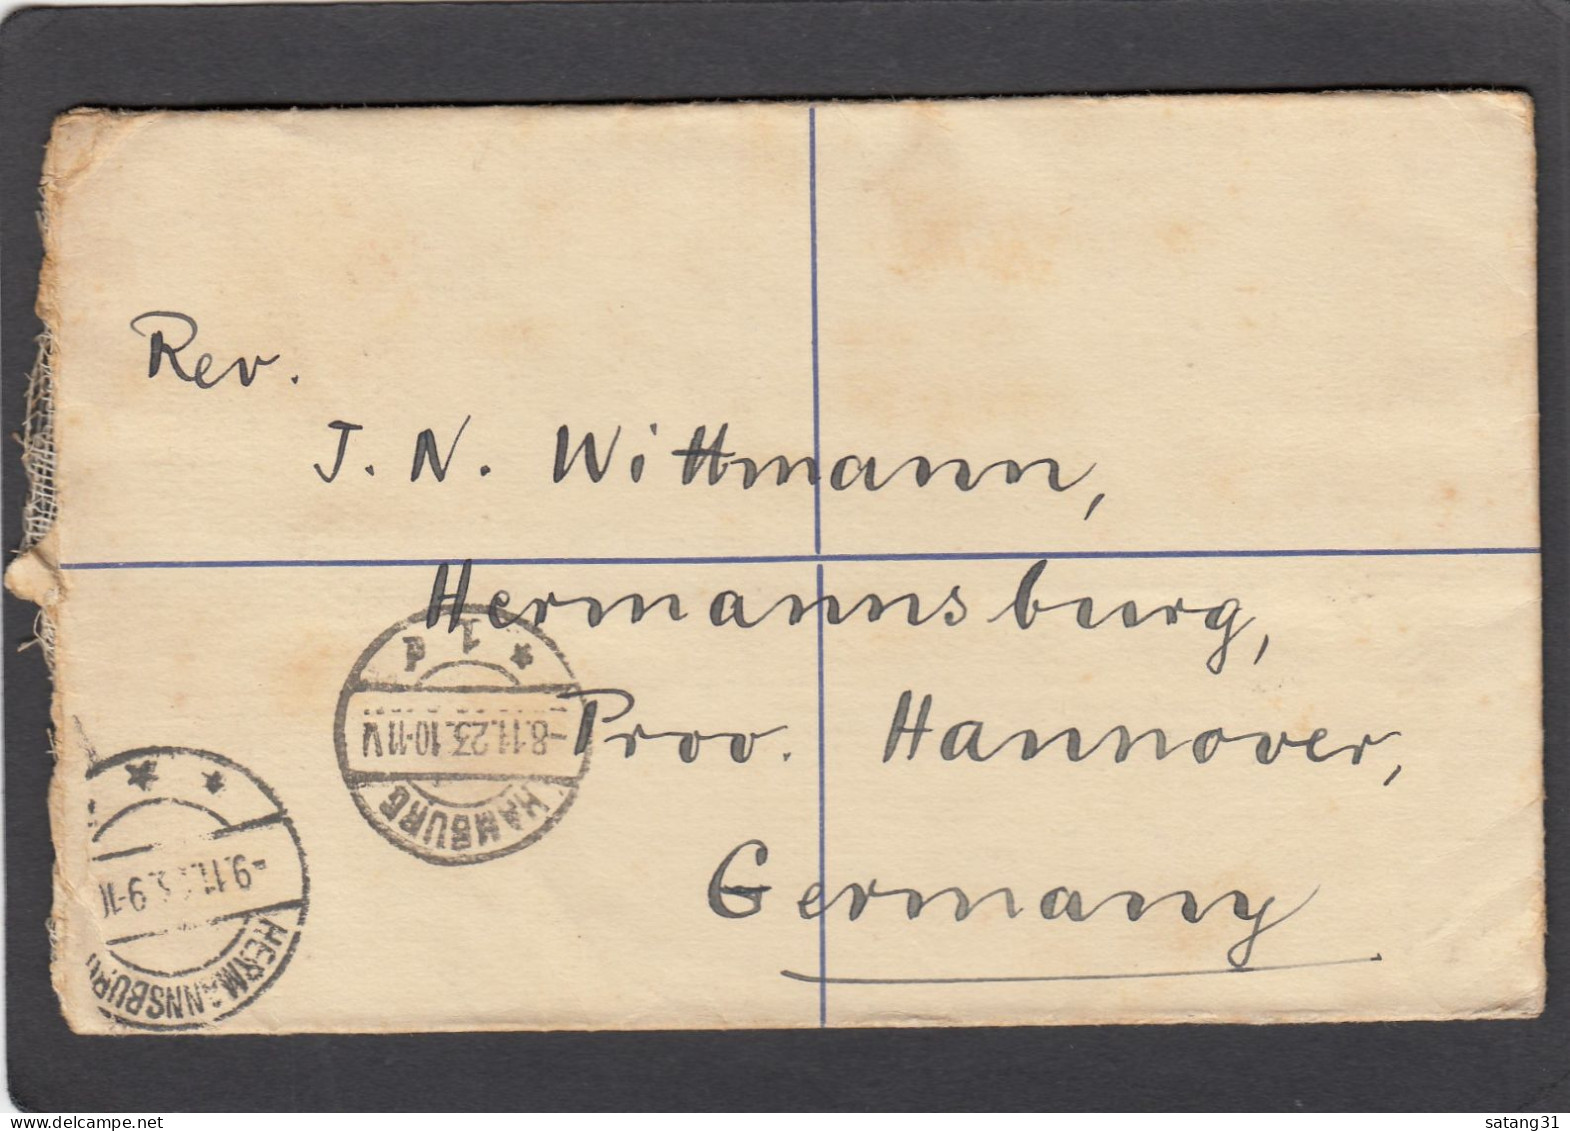 Rev.
J. N. Wittmann,
Hermannsburg,
Prov. Hannover,
Germany
* 1 d
-8.11.23.10-11 V
HAMBURG
* *
-9.11. 9-10
HERMANNSBURG
www.delcampe.net
satang31